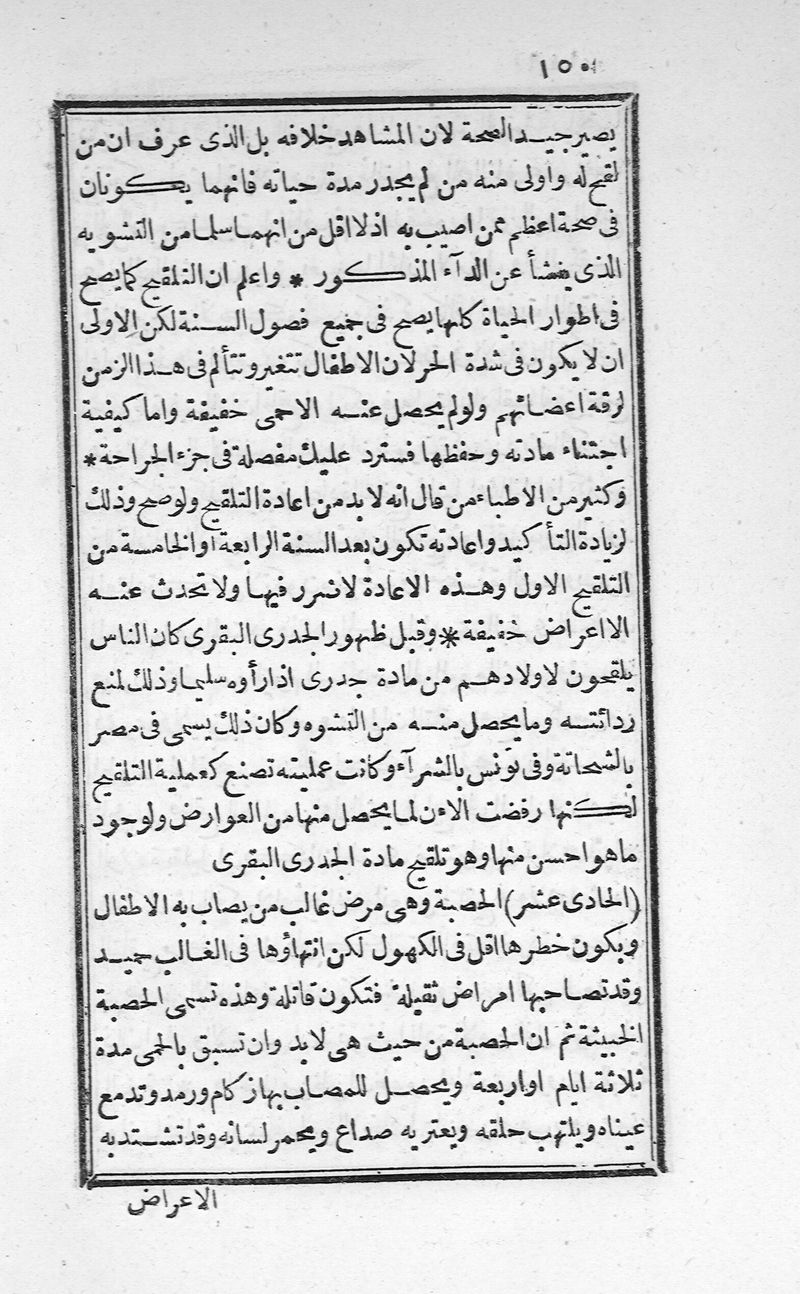 ١٥٠
يصير جيد الصحة لان المشاهد خلافه بل الذى عرف ان من
لقح له واولى منه من لم يجدر مدة حياته فانهما يكونان
فى صحة اعظم ممن اصيب به اذ لا اقل من انهما سلما من التشويه
الذى ينشأ عن الدآء المذكور * واعلم ان التلقيح كما يصح
فى اطوار الحياة كلها يصح فى جميع فصول السنة لكن الاولى
ان لا يكون فى شدة الحر لان الاطفال تتغير وتتألم فى هذا الزمن
لرقة اعضائهم ولو لم يحصل عنه الا حمى خفيفة واما كيفية
اجتناء مادته وحفظها فسترد عليك مفصلة فى جزء الجراحة *
وكثير من الاطباء من قال انه لا بد من اعادة التلقيح ولو صح وذلك
لزيادة التأكيد واعادته تكون بعد السنة الرابعة أوالخامسة من
التلقيح الاول وهذه الاعادة لا ضرر فيها ولا تحدث عنه
الا اعراض خفيفة * وقبل ظهور الجدرى البقرى كان الناس
يلقحون لاولادهم من مادة جدرى اذا رأوه سليما وذلك لمنع
ردائته وما يحصل منه من التشوه وكان ذلك يسمى فى مصر
بالشحاتة وفى تونس بالشرآء وكانت عمليته تصنع كعملية التلقيح
لكنها رفضت الآن لما يحصل منها من العوارض ولوجود
ما هو احسن منها وهو تلقيح مادة الجدرى البقرى
(الحادى عشر) الحصبة وهى مرض غالب من يصاب به الاطفال
ويكون خطرها اقل فى الكهول لكن انتهاؤها فى الغالب حميد
وقد تصاحبها امراض ثقيلة فتكون قاتلة وهذه تسمى الحصبة
الخبيثة ثم ان الحصبة من حيث هى لا بد وان تسبق بالحمى مدة
ثلاثة ايام او اربعة ويحصل للمصاب بها زكام ورمد وتدمع
عيناه ويلتهب حلقه ويعتريه صداع ويحمر لسانه وقد تشتد به
الاعراض